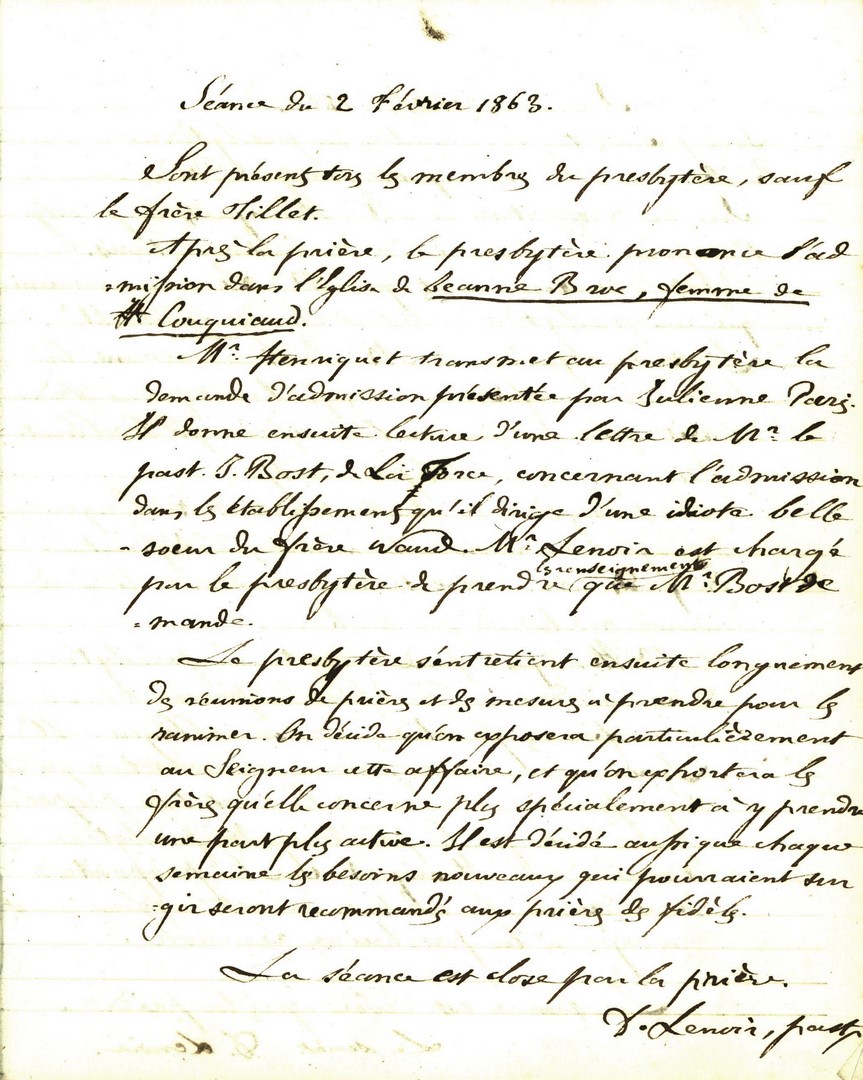 Séance du 2 Février 1863.
Sont présents tous les membres du presbytère, sauf
le frère Tillet.
Après la prière, le presbytère prononce l'ad
=mission dans l'Eglise de Jeanne Broc, femme de
H Couquiaud.
Mr. Henriquet transmet au presbytère la
demande d'admission présentée par Julienne Paris.
Il donne ensuite lecture d'une lettre de Mr. le
past. J. Bost, de La Force, concernant l'admission
dans les établissements qu'il dirige d'une idiote belle
-soeur du frère Waud. Mr. Lenoir est chargé
par le presbytère de prendre les renseignements que Mr. Bost de
=mande.
Le presbytère s'entretient ensuite longuement
des réunions de prières et des mesures à prendre pour les
ranimer. On décide qu'on exposera particulièrement
au Seigneur cette affaire, et qu'on exhortera les
frères qu'elle concerne plus spécialement à y prendre
une part plus active. Il est décidé aussi que chaque
semaine les besoins nouveaux qui pourraient sur
=gir seront recommandés aux prières des fidèles.
La séance est close par la prière.
D. Lenoir, past.